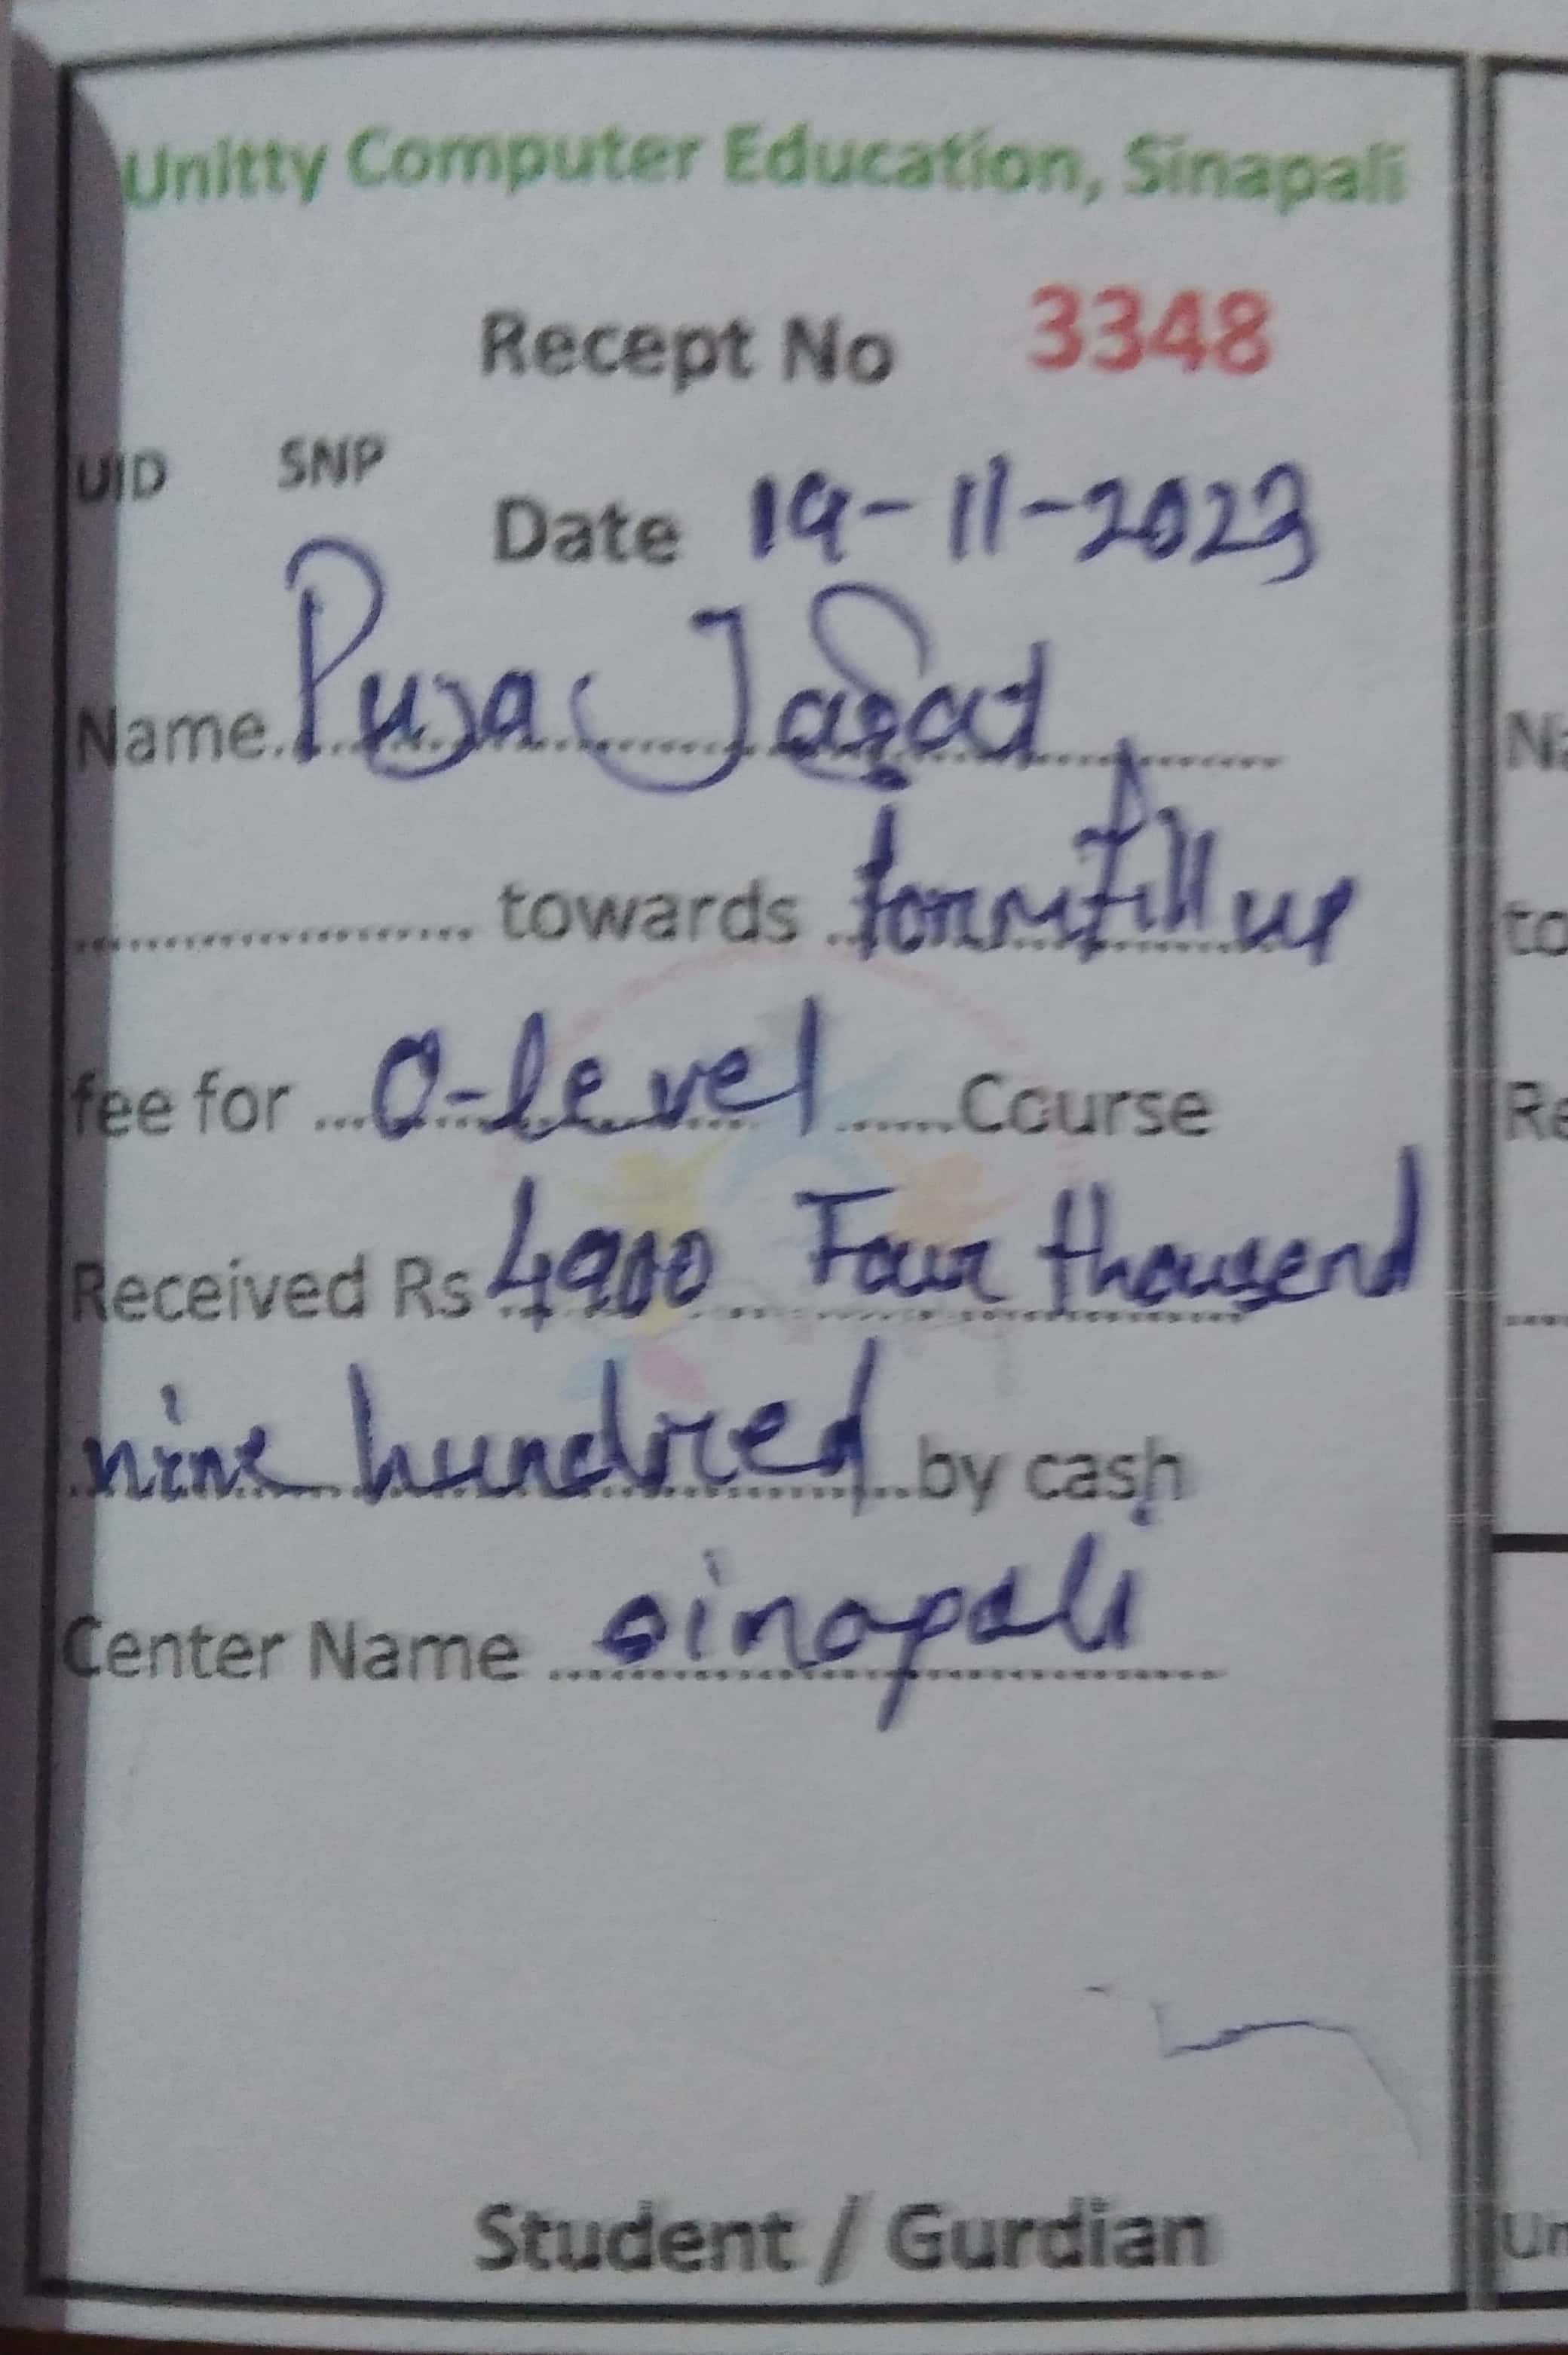 Unitty Computer Education, Sinapali
Recept No 3348
UID SNP
Date 19-11-2023
Name. Puja
towards formfill up
fee for O-level Course
Received Rs 4900 Four thousend
nine hundred by cash
Center Name sinapali
Student / Gurdian
Na
to
Re
Un